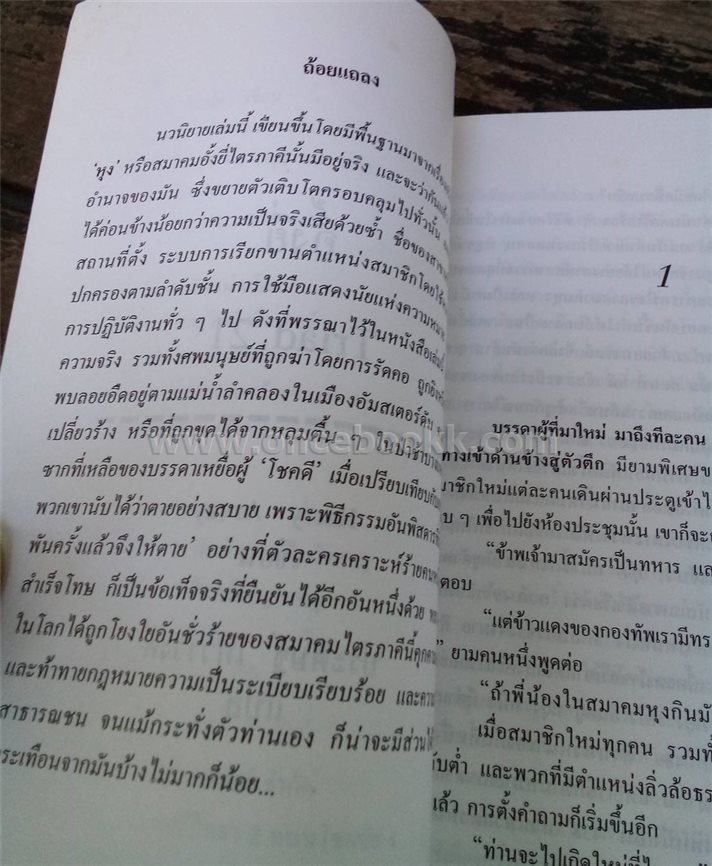 ถ้อยแถลง
นวนิยายเล่มนี้ เขียนขึ้นโดยมีพื้นฐานมาจาก
‘หุง’ หรือสมาคมอั้งยี่ไตรภาคีนั้นมีอยู่จริง และจะว่ากัน
อำนาจของมัน ซึ่งขยายตัวเติบโตครอบคลุมไปทั่วนั้น
ได้ค่อนข้างน้อยกว่าความเป็นจริงเสียด้วยซ้ำ ชื่อของ
สถานที่ตั้ง ระบบการเรียกขานตำแหน่งสมาชิกโดย
ปกครองตามลำดับชั้น การใช้มือแสดงนัยแห่งความ
การปฏิบัติงานทั่ว ๆ ไป ดังที่พรรณาไว้ในหนังสือ
ความจริง รวมทั้งศพมนุษย์ที่ถูกฆ่าโดยการรัดคอ
พบลอยอืดอยู่ตามแม่น้ำลำคลองในเมืองอัมสเตอร์ดัม
เปลี่ยวร้าง หรือที่ถูกขุดได้จากหลุมตื้น ๆ ใน
ซากที่เหลือของบรรดาเหยื่อผู้ ‘โชคดี’ เมื่อเปรียบเทียบ
พวกเขานับได้ว่าตายอย่างสบาย เพราะพิธีกรรมอัน
พันครั้งแล้วจึงให้ตาย’ อย่างที่ตัวละครเคราะห์ร้าย
สำเร็จโทษ ก็เป็นข้อเท็จจริงที่ยืนยันได้อีกอันหนึ่งด้วย
ในโลกได้ถูกโยงใยอันชั่วร้ายของสมาคมไตรภาคีนี้
และท้าทายกฎหมายความเป็นระเบียบเรียบร้อย และ
สาธารณชน จนแม้กระทั่งตัวท่านเอง ก็น่าจะมีส่วน
ระเทือนจากมันบ้างไม่มากก็น้อย...
1
บรรดาผู้ที่มาใหม่ มาถึงทีละคน
ทางเข้าด้านข้างสู่ตัวตึก มียามพิเศษ
าชิกใหม่แต่ละคนเดินผ่านประตูเข้าไ
บ ๆ เพื่อไปยังห้องประชุมนั้น เขาก็จะ
“ข้าพเจ้ามาสมัครเป็นทหาร
ตอบ
“แต่ข้าวแดงของกองทัพเรามี
” ยามคนหนึ่งพูดต่อ
“ถ้าพี่น้องในสมาคมหุงกินมั
เมื่อสมาชิกใหม่ทุกคน รวมทั้
ับต่ำ และพวกที่มีตำแหน่งลิ่วล้อ
แล้ว การตั้งคำถามก็เริ่มขึ้นอีก
“ท่านจะไปเกิดใหม่ที่
www.oncebookk.com